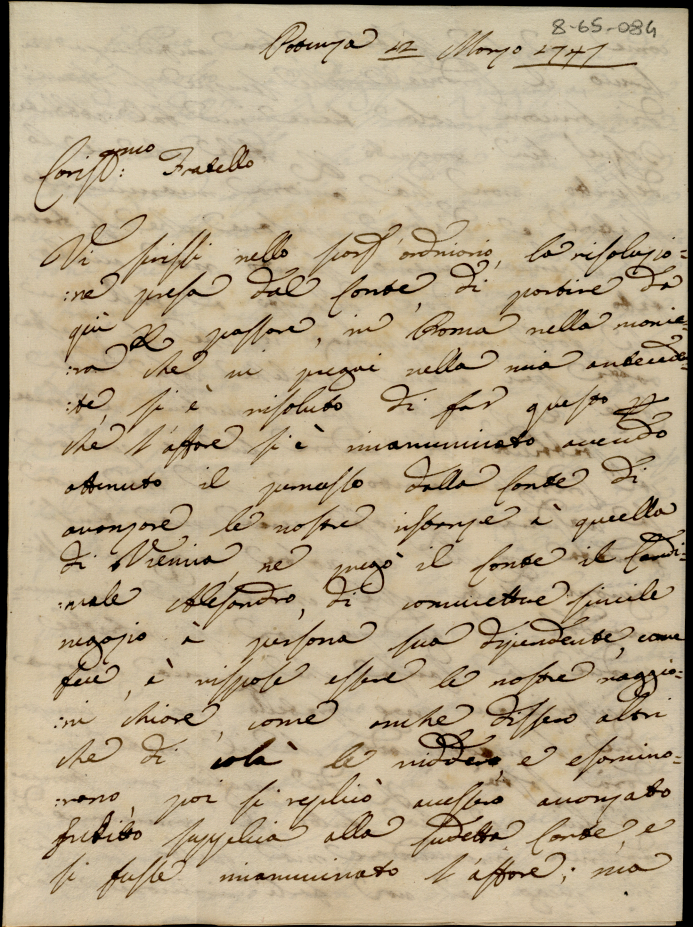 8-65-084
Potenza 12 Marzo 1747
Cariss.mo Fratello
Vi scrissi nello scors'ordinario, la risoluzio=
:ne presa dal Conte, di partire da
qui per passare, in Roma nella manie=
:ra che vi pregai nella mia anteceden=
:te, si è risoluto di far questo per
che l'affare si è incaminato avendo
ottenuto il permesso dalla Corte di
avanzare le nostre istanze à quella
di Vienna, ne pregò il Conte il Cardi=
:nale Alesandro, di commettere simile
negozio à persona sua dipendente, come
fece, è rispose essere le nostre raggio=
:ni chiare, come anche dissero altri
che di colà le viddero, e esamina=
:rono, poi si replicò avessero avanzato
subito supplica alla sudetta Corte e
si fusse incaminato l'affare; mà